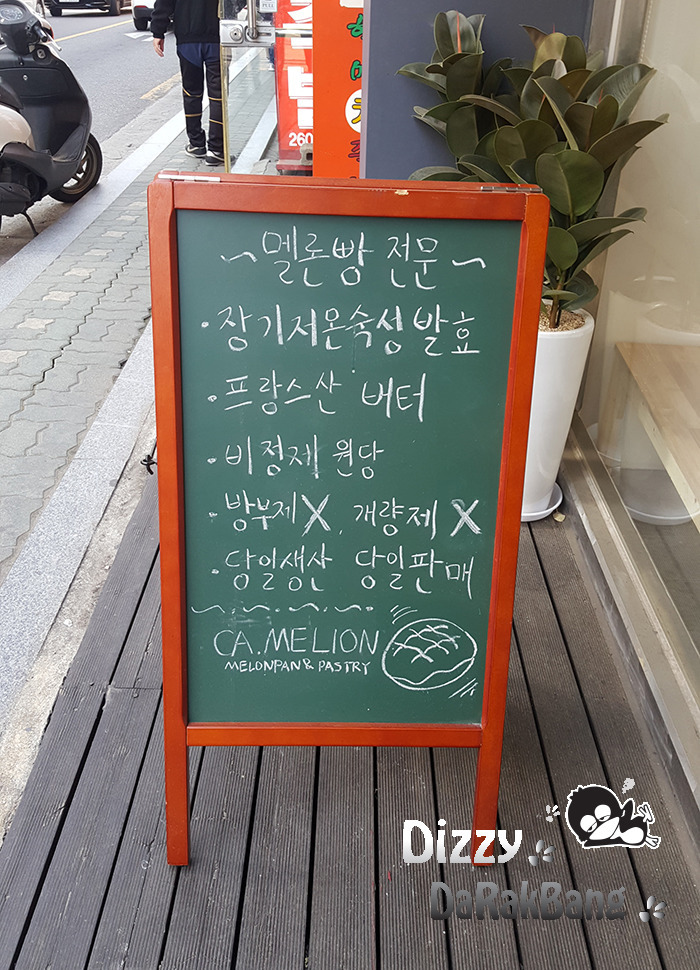 ~ 멜론빵 전문 ~
· 장기저온숙성발효
· 프랑스산 버터
· 비정제 원당
· 방부제 X, 개량제 X
· 당일생산 당일판매
CA.MELION
MELONPAN & PASTRY
Dizzy
DaRakBang
260